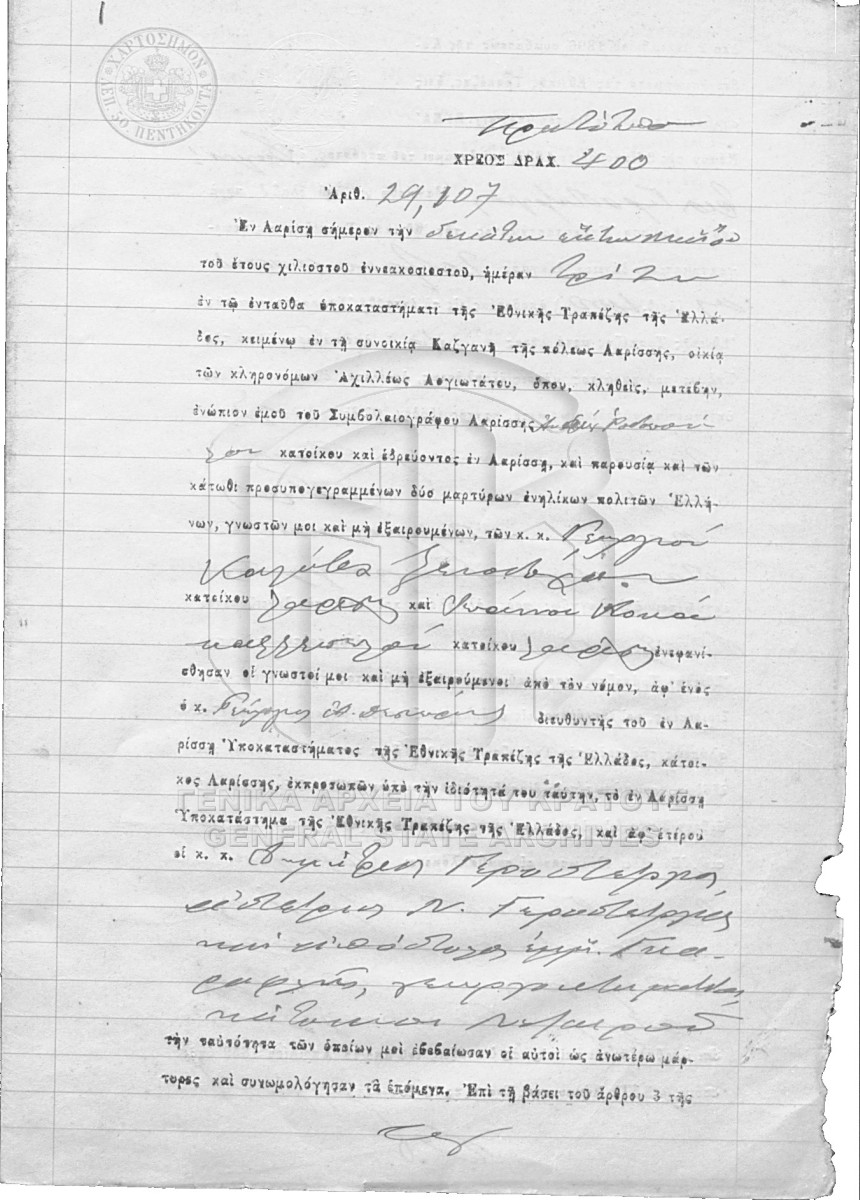 ΧΑΡΤΟΣΗΜΟΝ
ΛΕΠ. 50. ΠΕΝΤΗΚΟΝΤΑ
ΧΡΕΟΣ ΔΡΑΧ. 400
Ἀριθ. 29,107
Ἐν Λαρίσῃ σήμερον τὴν δεκάτην ἕκτην
τοῦ ἔτους χιλιοστοῦ ἐννεακοσιοστοῦ, ἡμέραν Τρίτην
ἐν τῷ ἐνταῦθα ὑποκαταστήματι τῆς Ἐθνικῆς Τραπέζης τῆς Ἑλλά-
δος, κειμένῳ ἐν τῇ συνοικίᾳ Καζγανῆ τῆς πόλεως Λαρίσσης, οἰκίᾳ
τῶν κληρονόμων Ἀχιλλέως Λογιωτάτου, ὅπου, κληθεὶς, μετέβην,
ἐνώπιον ἐμοῦ τοῦ Συμβολαιογράφου Λαρίσσης
κατοίκου καὶ ἑδρεύοντος ἐν Λαρίσσῃ, καὶ παρουσίᾳ καὶ τῶν
κάτωθι προσυπογεγραμμένων δύο μαρτύρων ἐνηλίκων πολιτῶν Ἑλλή-
νων, γνωστῶν μοι καὶ μὴ ἐξαιρουμένων, τῶν κ. κ. Γεωργίου
κατοίκου Λαρίσσης καὶ Ἰωάννου
κατοίκου Λαρίσσης ἐνεφανί-
σθησαν οἱ γνωστοί μοι καὶ μὴ ἐξαιρούμενοι ἀπὸ τὸν νόμον, ἀφ' ἑνὸς
ὁ κ. Γεώργιος διευθυντὴς τοῦ ἐν Λα-
ρίσσῃ Ὑποκαταστήματος τῆς Ἐθνικῆς Τραπέζης τῆς Ἑλλάδος, κάτοι-
κος Λαρίσσης, ἐκπροσωπῶν ὑπὸ τὴν ἰδιότητά του ταύτην, τὸ ἐν Λαρίσσῃ
Ὑποκατάστημα τῆς Ἐθνικῆς Τραπέζης τῆς Ἑλλάδος, καὶ ἀφ' ἑτέρου
ΓΕΝΙΚΑ ΑΡΧΕΙΑ ΤΟΥ ΚΡΑΤΟΥΣ
GENERAL STATE ARCHIVES
οἱ κ. κ. Δημήτριος Γεροστέργιος,
Ν. Γεροστέργιος
καὶ Ἀπόστολος
κάτοικοι
τὴν ταὐτότητα τῶν ὁποίων μοὶ ἐβεβαίωσαν οἱ αὐτοὶ ὡς ἀνωτέρω μάρ-
τυρες καὶ συνωμολόγησαν τὰ ἑπόμενα. Ἐπὶ τῇ βάσει τοῦ ἄρθρου 3 τῆς